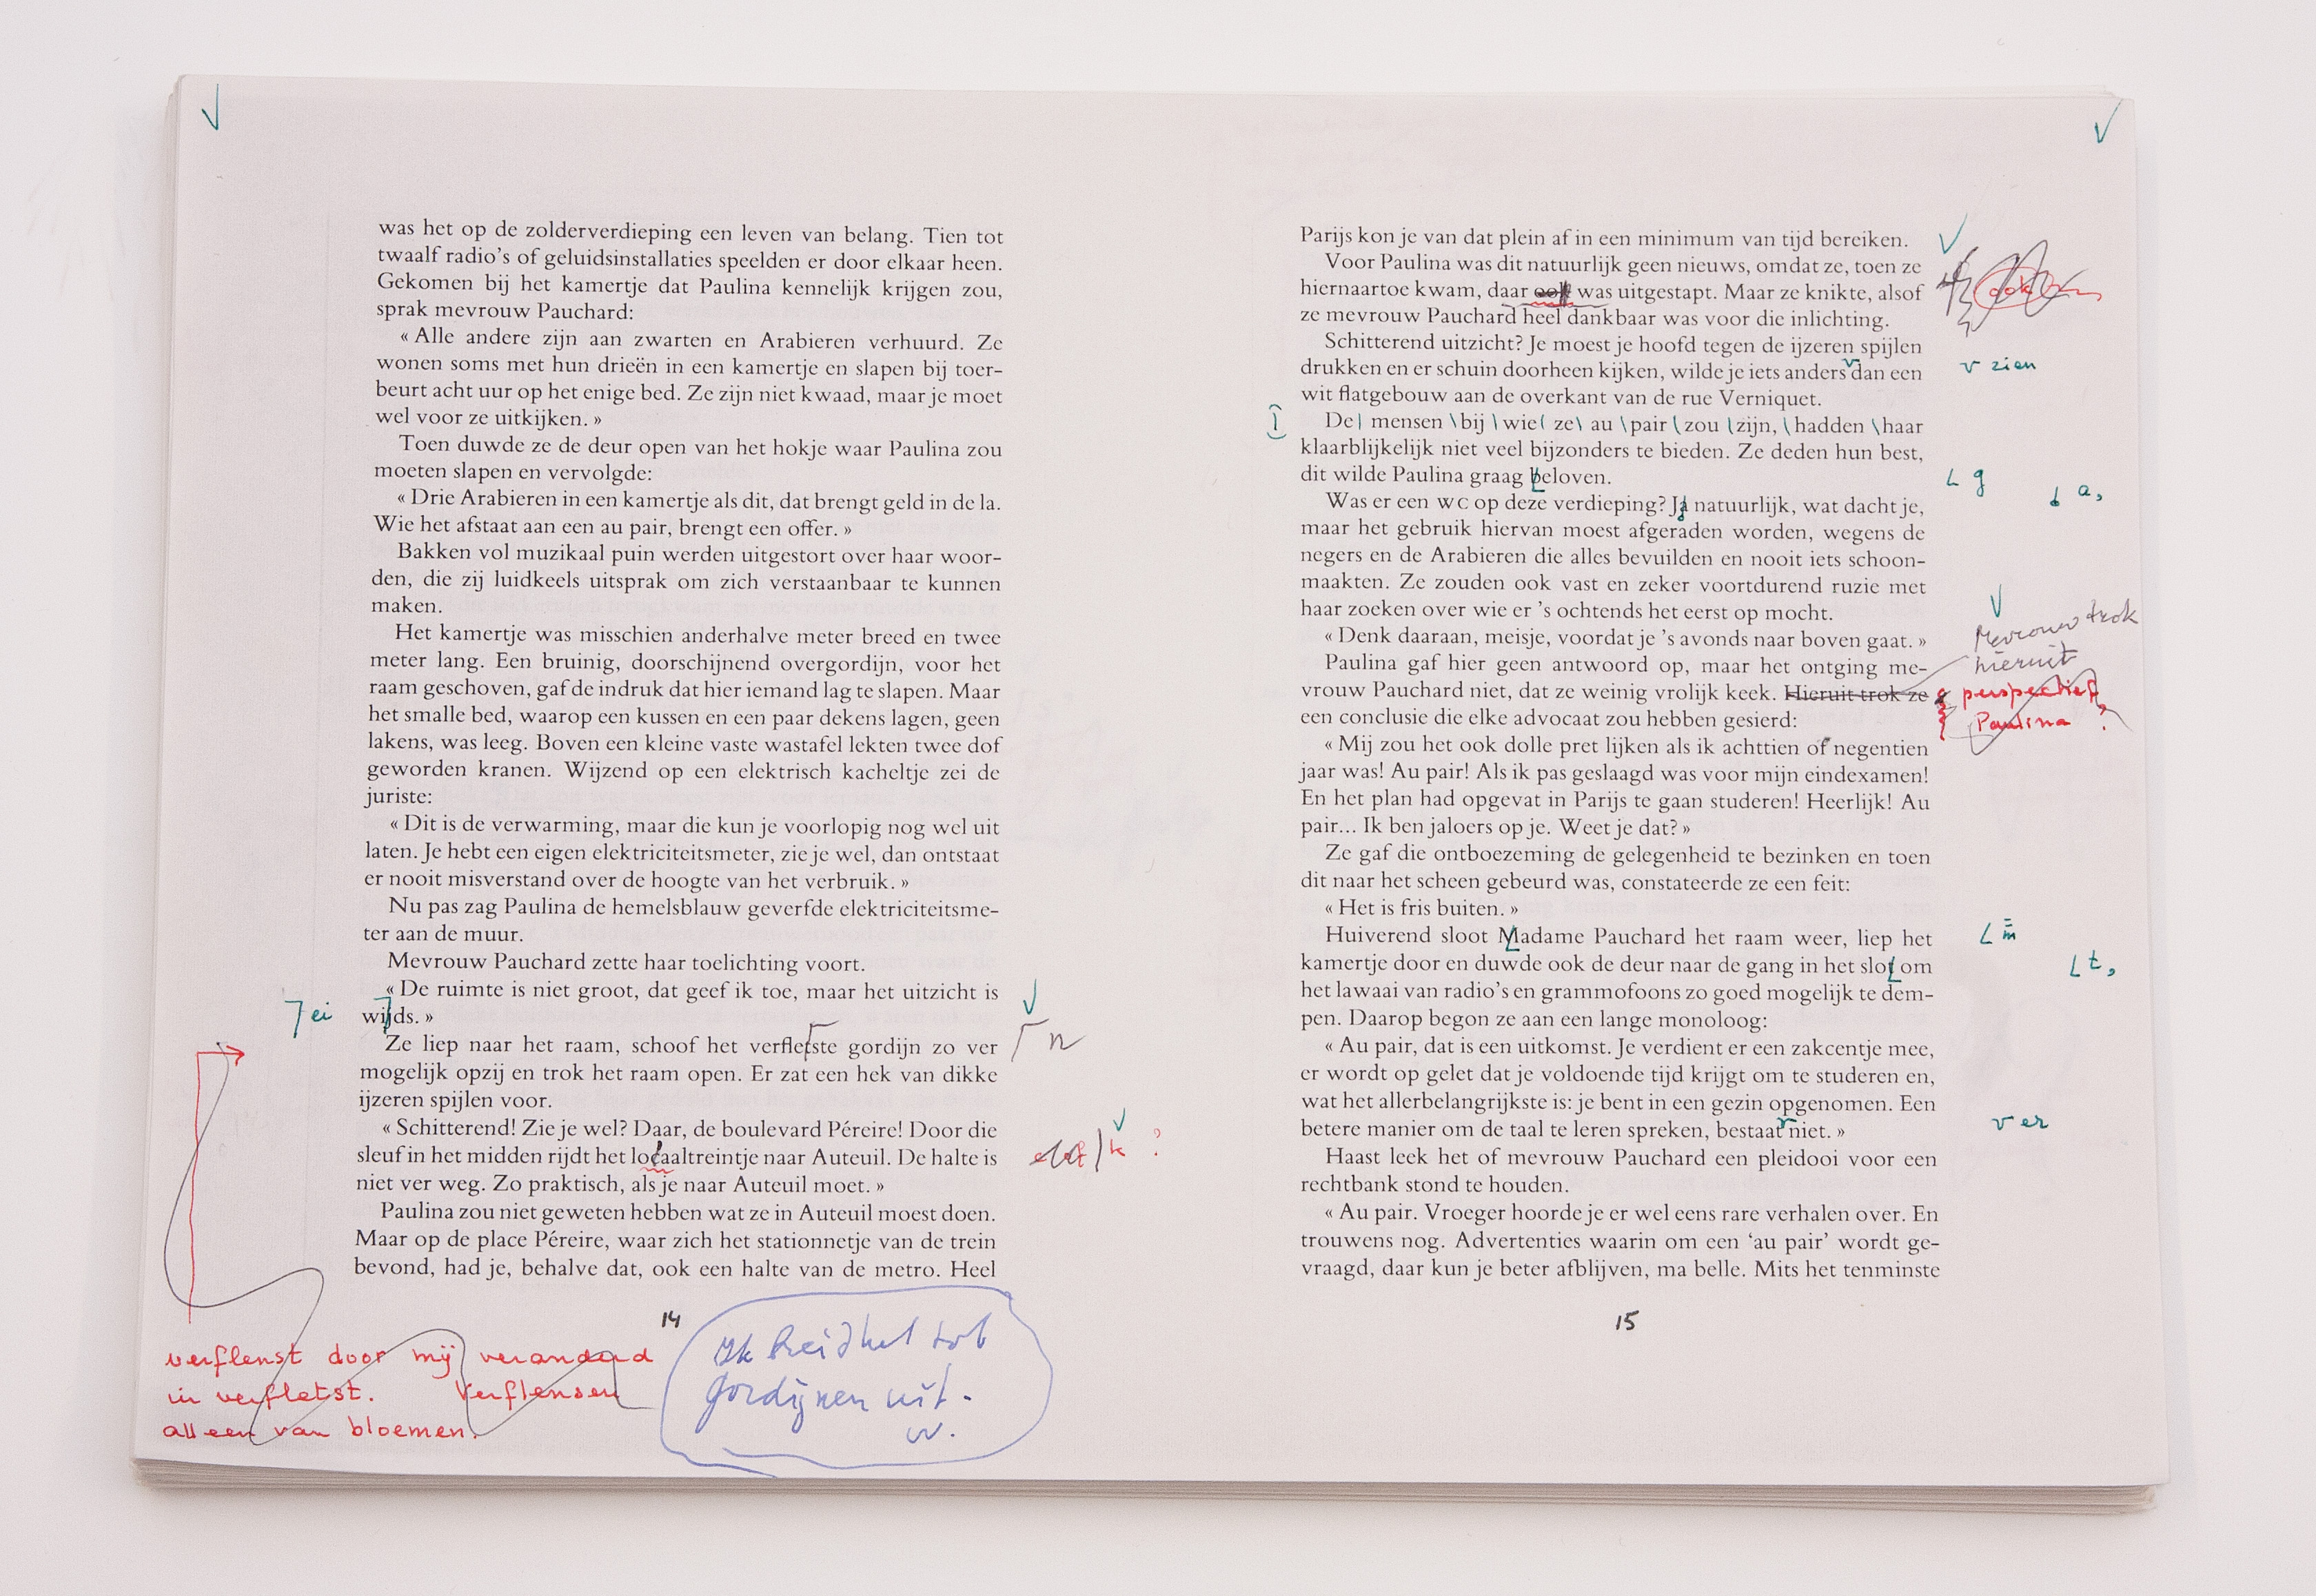 was het op de zolderverdieping een leven van belang. Tien tot
twaalf radio's of geluidsinstallaties speelden er door elkaar heen.
Gekomen bij het kamertje dat Paulina kennelijk krijgen zou,
sprak mevrouw Pauchard:
« Alle andere zijn aan zwarten en Arabieren verhuurd. Ze
wonen soms met hun drieën in een kamertje en slapen bij toer-
beurt acht uur op het enige bed. Ze zijn niet kwaad, maar je moet
wel voor ze uitkijken. »
Toen duwde ze de deur open van het hokje waar Paulina zou
moeten slapen en vervolgde:
« Drie Arabieren in een kamertje als dit, dat brengt geld in de la.
Wie het afstaat aan een au pair, brengt een offer. »
Bakken vol muzikaal puin werden uitgestort over haar woor-
den, die zij luidkeels uitsprak om zich verstaanbaar te kunnen
maken.
Het kamertje was misschien anderhalve meter breed en twee
meter lang. Een bruinig, doorschijnend overgordijn, voor het
raam geschoven, gaf de indruk dat hier iemand lag te slapen. Maar
het smalle bed, waarop een kussen en een paar dekens lagen, geen
lakens, was leeg. Boven een kleine vaste wastafel lekten twee dof
geworden kranen. Wijzend op een elektrisch kacheltje zei de
juriste:
« Dit is de verwarming, maar die kun je voorlopig nog wel uit
laten. Je hebt een eigen elektriciteitsmeter, zie je wel, dan ontstaat
er nooit misverstand over de hoogte van het verbruik. »
Nu pas zag Paulina de hemelsblauw geverfde elektriciteitsme-
ter aan de muur.
Mevrouw Pauchard zette haar toelichting voort.
« De ruimte is niet groot, dat geef ik toe, maar het uitzicht is
ei wijds. »
Ze liep naar het raam, schoof het verfletste gordijn zo ver n
mogelijk opzij en trok het raam open. Er zat een hek van dikke
ijzeren spijlen voor.
« Schitterend! Zie je wel? Daar, de boulevard Péreire! Door die
sleuf in het midden rijdt het locaaltreintje naar Auteuil. De halte is k ?
niet ver weg. Zo praktisch, als je naar Auteuil moet. »
Paulina zou niet geweten hebben wat ze in Auteuil moest doen.
Maar op de place Péreire, waar zich het stationnetje van de trein
bevond, had je, behalve dat, ook een halte van de metro. Heel
14
verflenst door mij veranderd
in verfletst. Verflensen
alleen van bloemen.
Ik breid het tot
gordijnen uit.
Parijs kon je van dat plein af in een minimum van tijd bereiken.
Voor Paulina was dit natuurlijk geen nieuws, omdat ze, toen ze
hiernaartoe kwam, daar ook was uitgestapt. Maar ze knikte, alsof ook
ze mevrouw Pauchard heel dankbaar was voor die inlichting.
Schitterend uitzicht? Je moest je hoofd tegen de ijzeren spijlen
drukken en er schuin doorheen kijken, wilde je iets anders dan een zien
wit flatgebouw aan de overkant van de rue Verniquet.
De mensen bij wie ze au pair zou zijn, hadden haar
klaarblijkelijk niet veel bijzonders te bieden. Ze deden hun best,
dit wilde Paulina graag beloven. g
Was er een wc op deze verdieping? Ja natuurlijk, wat dacht je, a,
maar het gebruik hiervan moest afgeraden worden, wegens de
negers en de Arabieren die alles bevuilden en nooit iets schoon-
maakten. Ze zouden ook vast en zeker voortdurend ruzie met
haar zoeken over wie er 's ochtends het eerst op mocht.
« Denk daaraan, meisje, voordat je 's avonds naar boven gaat. » Mevrouw trok
Paulina gaf hier geen antwoord op, maar het ontging me- hieruit
vrouw Pauchard niet, dat ze weinig vrolijk keek. Hieruit trok ze perspectief
een conclusie die elke advocaat zou hebben gesierd: Paulina ?
« Mij zou het ook dolle pret lijken als ik achttien of negentien
jaar was! Au pair! Als ik pas geslaagd was voor mijn eindexamen!
En het plan had opgevat in Parijs te gaan studeren! Heerlijk! Au
pair... Ik ben jaloers op je. Weet je dat? »
Ze gaf die ontboezeming de gelegenheid te bezinken en toen
dit naar het scheen gebeurd was, constateerde ze een feit:
« Het is fris buiten. »
Huiverend sloot Madame Pauchard het raam weer, liep het m
kamertje door en duwde ook de deur naar de gang in het slot om t,
het lawaai van radio's en grammofoons zo goed mogelijk te dem-
pen. Daarop begon ze aan een lange monoloog:
« Au pair, dat is een uitkomst. Je verdient er een zakcentje mee,
er wordt op gelet dat je voldoende tijd krijgt om te studeren en,
wat het allerbelangrijkste is: je bent in een gezin opgenomen. Een
betere manier om de taal te leren spreken, bestaat niet. » er
Haast leek het of mevrouw Pauchard een pleidooi voor een
rechtbank stond te houden.
« Au pair. Vroeger hoorde je er wel eens rare verhalen over. En
trouwens nog. Advertenties waarin om een 'au pair' wordt ge-
vraagd, daar kun je beter afblijven, ma belle. Mits het tenminste
15